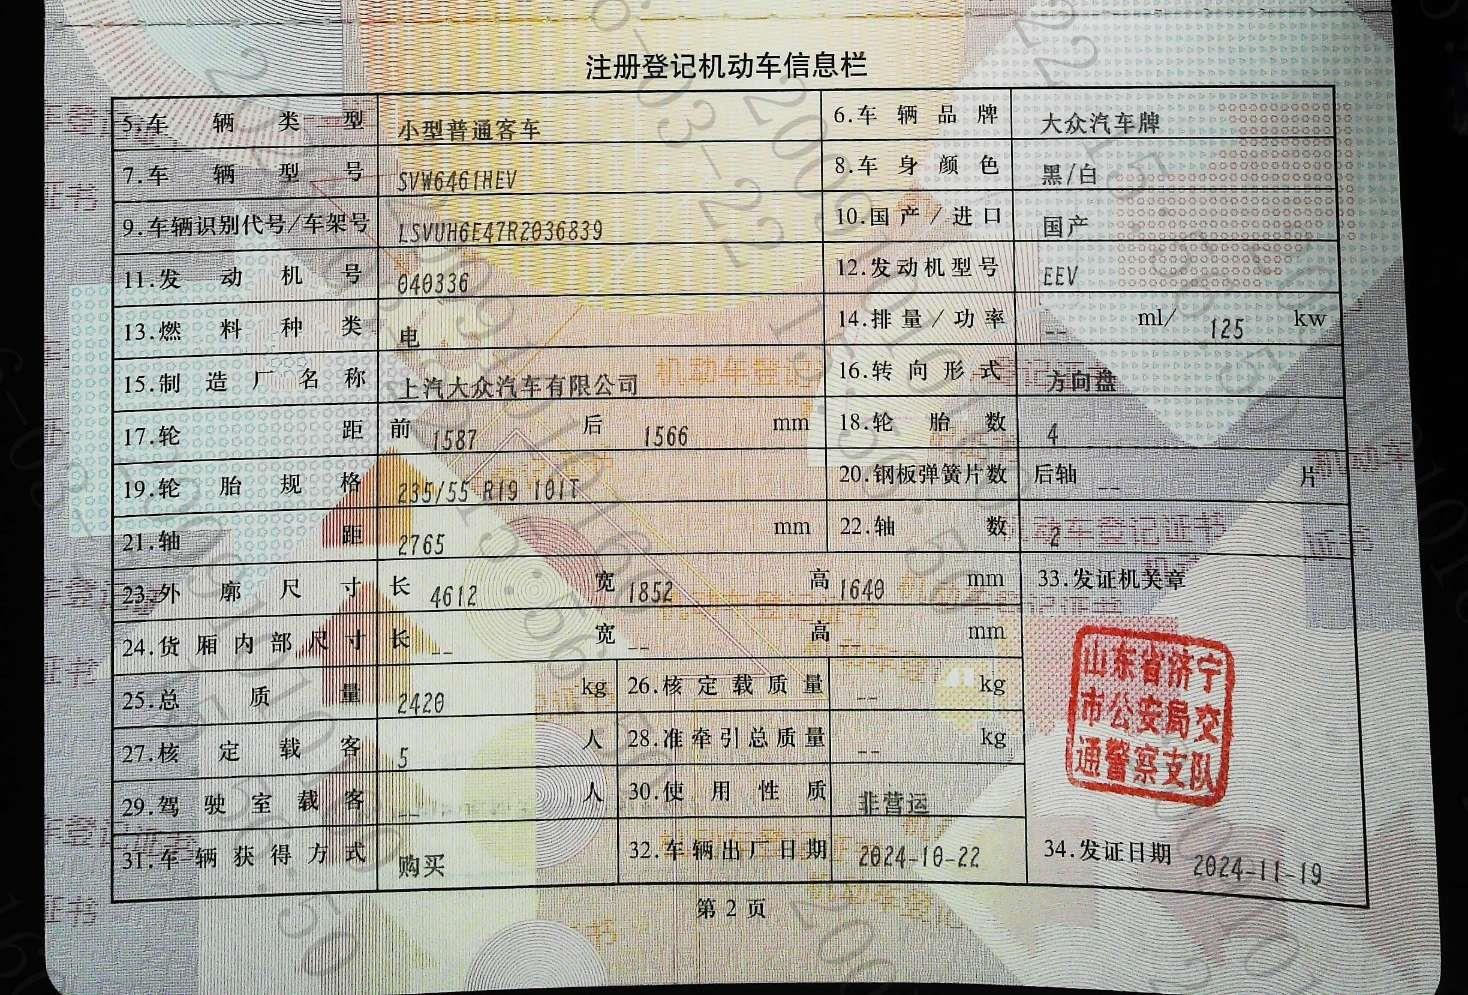 注册登记机动车信息栏
5.车辆类型 小型普通客车 6.车辆品牌 大众汽车牌
7.车辆型号 SVW6461HEV 8.车身颜色 黑/白
9.车辆识别代号/车架号 LSVUH6E47R2036839 10.国产/进口 国产
11.发动机号 040336 12.发动机型号 EEV
13.燃料种类 电 14.排量/功率 -- ml/ 125 kw
15.制造厂名称 上汽大众汽车有限公司 16.转向形式 方向盘
17.轮距 前 1587 后 1566 mm 18.轮胎数 4
19.轮胎规格 235/55 R19 101T 20.钢板弹簧片数 后轴 -- 片
21.轴距 2765 mm 22.轴数 2
23.外廓尺寸 长 4612 宽 1852 高 1640 mm 33.发证机关章
24.货厢内部尺寸 长 -- 宽 -- 高 -- mm
25.总质量 2420 kg 26.核定载质量 -- kg
山东省济宁
市公安局交
通警察支队
27.核定载客 5 人 28.准牵引总质量 -- kg
29.驾驶室载客 -- 人 30.使用性质 非营运
31.车辆获得方式 购买 32.车辆出厂日期 2024-10-22 34.发证日期 2024-11-19
第 2 页